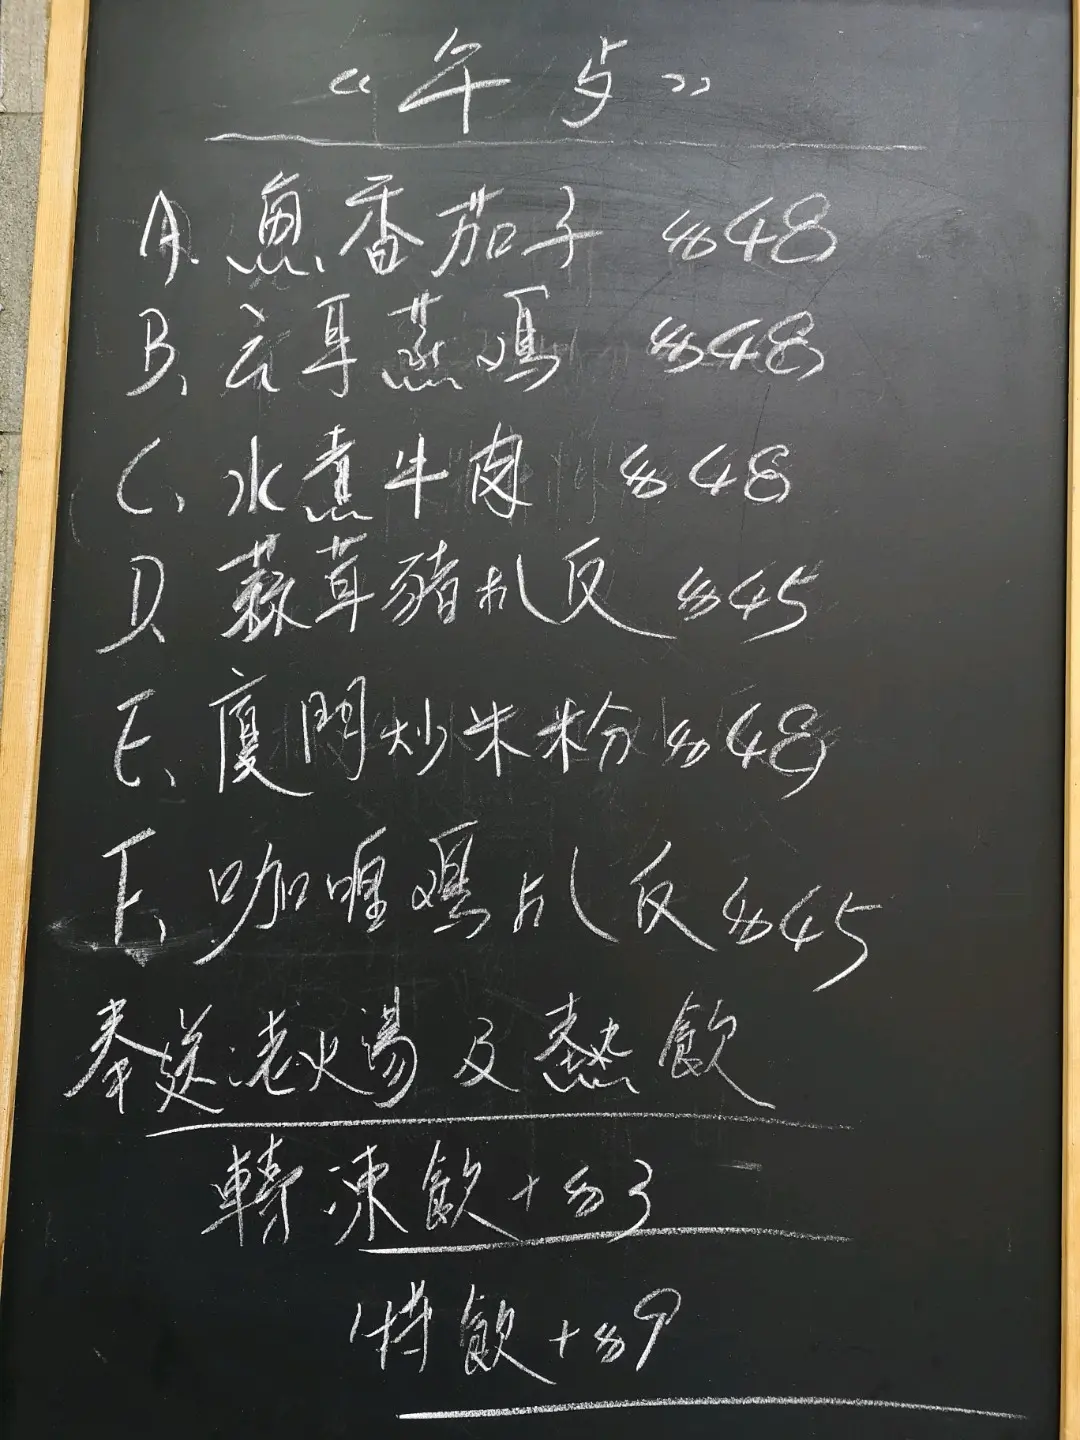 《午歺》
A. 魚香茄子 $48
B. 云耳蒸鸡 $48
C. 水煮牛肉 $48
D. 蒜茸豬扒反 $45
E. 廈門炒米粉 $48
F. 咖喱鸡扒反 $45
奉送老火湯及熱飲
轉凍飲+$3
特飲+$9